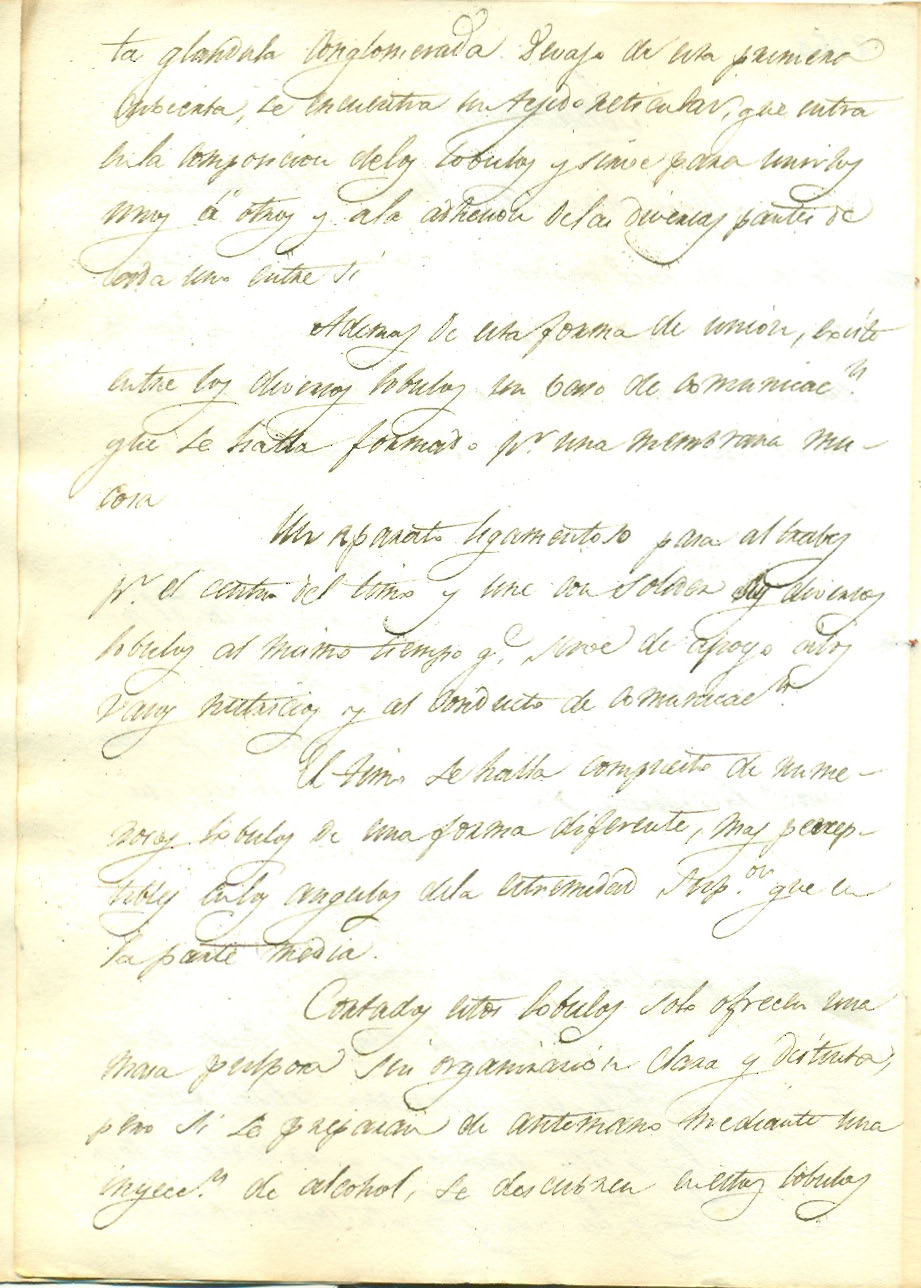 ta glandula conglomerada. Devajo de esta primera
cubierta, se encuentra un tejido reticular, que entra
en la composicion delos lobulos y sirve para unirlos
unos á otros y ala adhesion delas diversas partes de
cada uno entre si
Ademas de esta forma de union, existe
entre los diversos lobulos un baso de comunicacn.
que se halla formado pr. una membrana mu-
cosa
Un aparato ligamentoso pasa al trabes
pr. el centro del timo y une con solidez sus diversos
lobulos al mismo tiempo qe. sirve de apoyo alos
vasos nutricios y al conducto de comunicacn.
El timo se halla compuesto de nume-
rosos lobulos de una forma diferente, mas percep-
tibles enlos angulos dela estremidad Supor. que en
la parte media.
Cortados estos lobulos solo ofrecen una
masa pulposa sin organizacion clara y distinta,
pero si se preparan de antemano mediante una
inyeccn. de alcohol, se descubren en estos lobulos